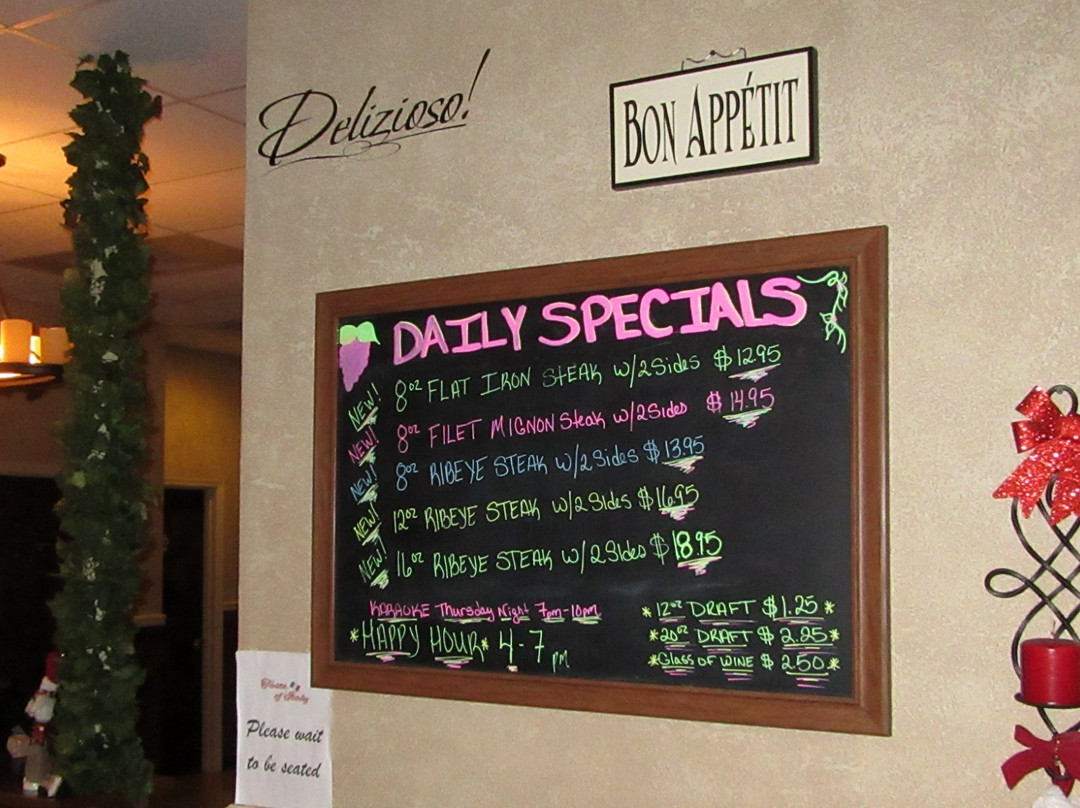 Delizioso!
BON APPÉTIT
DAILY SPECIALS
NEW! 8oz FLAT IRON STEAK w/2 Sides $12.95
NEW! 8oz FILET MIGNON Steak w/2 Sides $14.95
NEW! 8oz RIBEYE STEAK w/2 Sides $13.95
NEW! 12oz RIBEYE STEAK w/2 Sides $16.95
NEW! 16oz RIBEYE STEAK w/2 Sides $18.95
KARAOKE Thursday Night 7pm-10pm
*HAPPY HOUR* 4-7 pm
*12oz DRAFT $1.25*
*20oz DRAFT $2.25*
*Glass OF WINE $2.50*
Please wait
to be seated